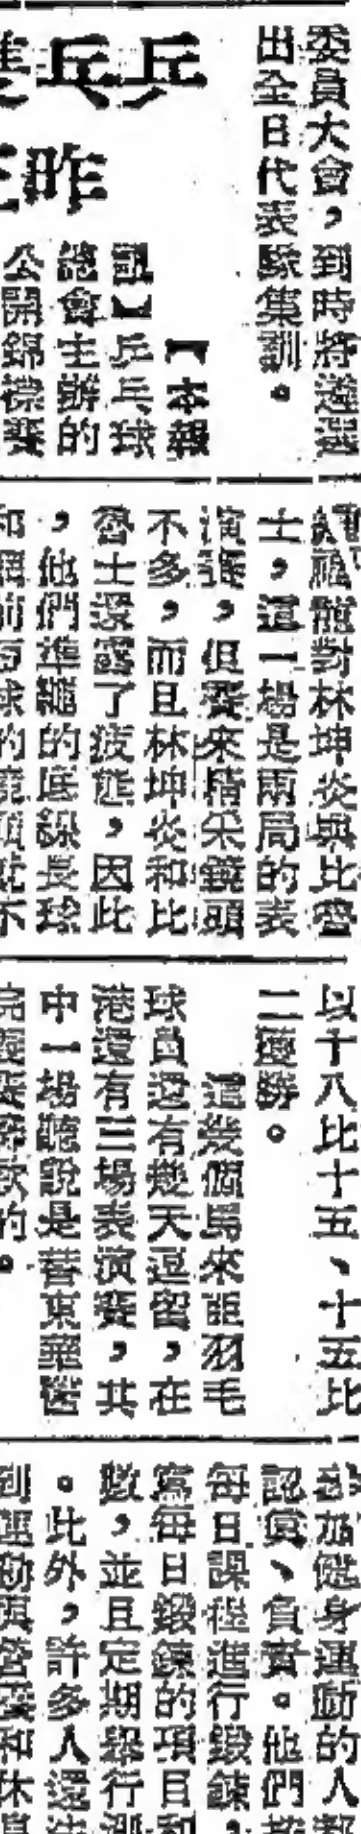 委員大會，到時將遴選
出全日代表隊集訓。
乒乓
昨
【本報
訊】乒乓球
總會主辦的
公開錦標賽
龍對林坤炎與比魯
士，這一場是兩局的表
演賽，但賽來精采鏡頭
不多，而且林坤炎和比
魯士還露了疲態，因此
，他們準繩的底線長球
和網前
以十八比十五、十五比
二獲勝。
這幾個馬來亞羽毛
球員還有幾天逗留，在
港還有三場表演賽，其
中一場聽說是替東華醫
院
參加健身運動的人都
認真、負責。他們按
每日課程進行鍛鍊，
寫每日鍛鍊的項目和
數，並且定期舉行測
。此外，許多人還注
到運動與營養和休息